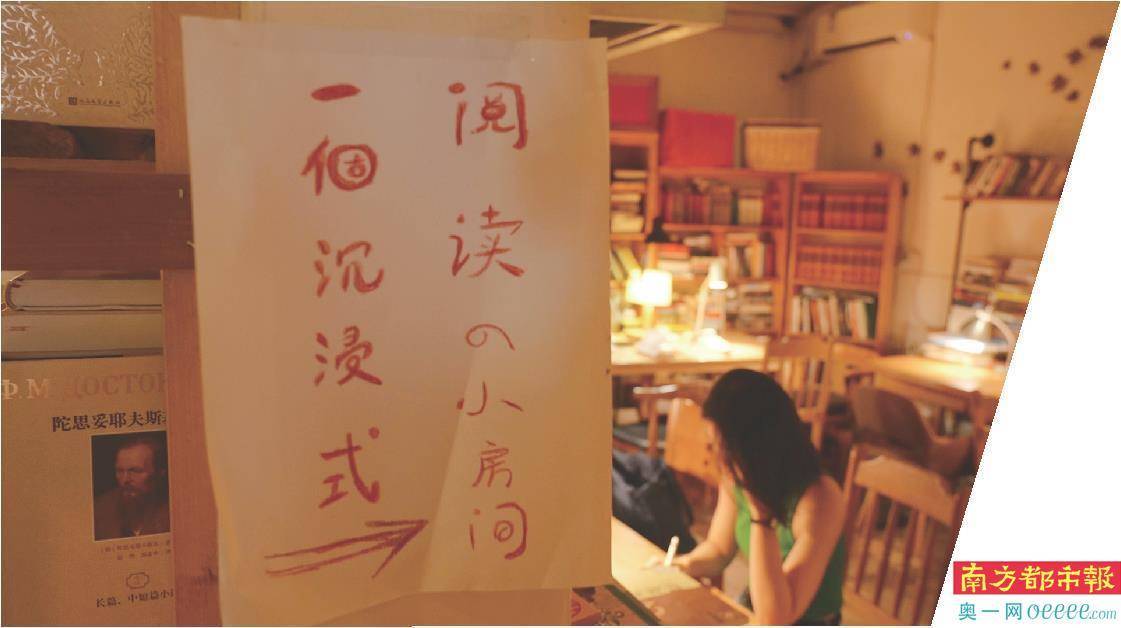 一個沉浸式
阅读の小房间
Ф.М.ДОСТО
陀思妥耶夫斯
长篇、中短篇小
南方都市報
奥一网oeeee.com